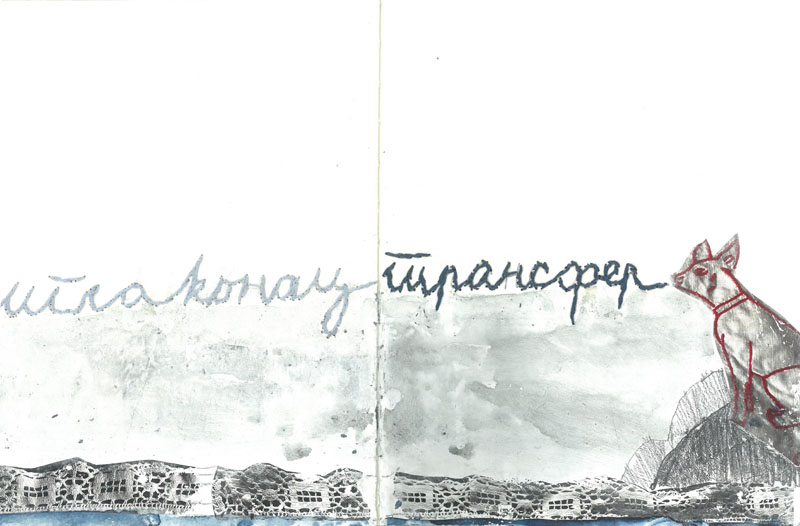 игла конац трансфер